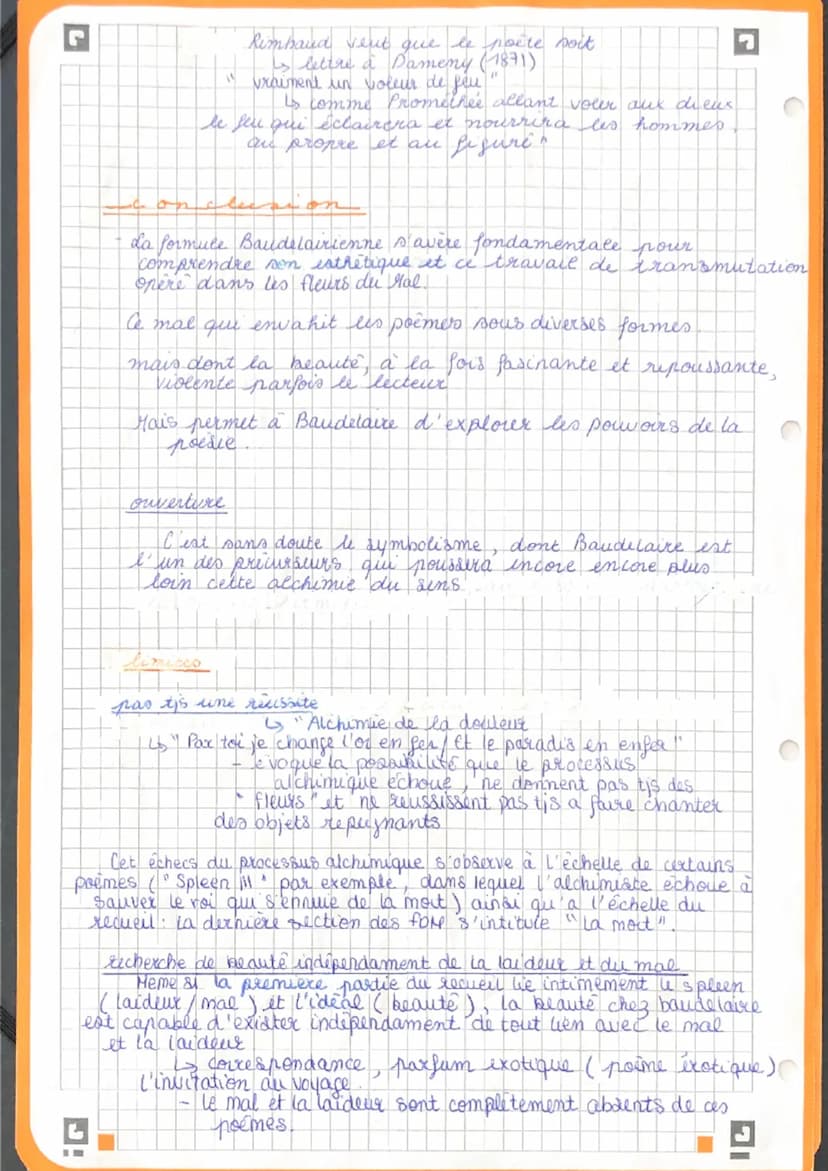 Rimbaud veut que le poète soit
↳ lettre à Dameny (1871)
" vraiment un voleur de feu "
↳ comme Prométhée allant voler aux dieux
le feu qui éclairera et nourrira les hommes,
au propre et au figuré "
Conclusion
- La formule Baudelairienne s'avère fondamentale pour
comprendre son esthétique et ce travail de transmutation
opéré dans les fleurs du Mal.
Ce mal qui envahit les poèmes sous diverses formes.
mais dont la beauté, à la fois fascinante et repoussante,
violente parfois le lecteur
Mais permet à Baudelaire d'explorer les pouvoirs de la
poésie.
ouverture
C'est sans doute le symbolisme, dont Baudelaire est
l'un des précurseurs, qui poussera encore encore plus
loin cette alchimie du sens.
limites
pas tjs une réussite
↳ " Alchimie de la douleur
↳ " Par toi je change l'or en fer / Et le paradis en enfer "
- évoque la possibilité que le processus
alchimique échoue, ne donnent pas tjs des
" fleurs " et ne réussissent pas tjs a faire chanter
des objets repugnants
Cet échecs du processus alchimique s'observe à l'échelle de certains
poèmes ( " Spleen III " par exemple, dans lequel l'alchimiste échoue à
sauver le roi qui s'ennuie de la mort ) ainsi qu'a l'échelle du
recueil : la dernière section des fDM s'intitule " La mort ".
recherche de beauté indépendament de la laideur et du mal
Meme si la première partie du recueil lie intimement le spleen
( laideur / mal ) et l'idéal ( beauté ), la beauté chez baudelaire
est capable d'exister indépendament de tout lien avec le mal
et la laideur
↳ correspondance, parfum exotique ( poème érotique )
l'invitation au voyage.
- le mal et la laideur sont complètement absents de ces
poèmes.